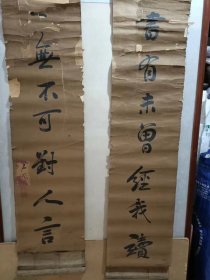 書有未曾經我讀
無不可對人言